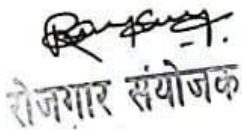 रोजगार संयोजक